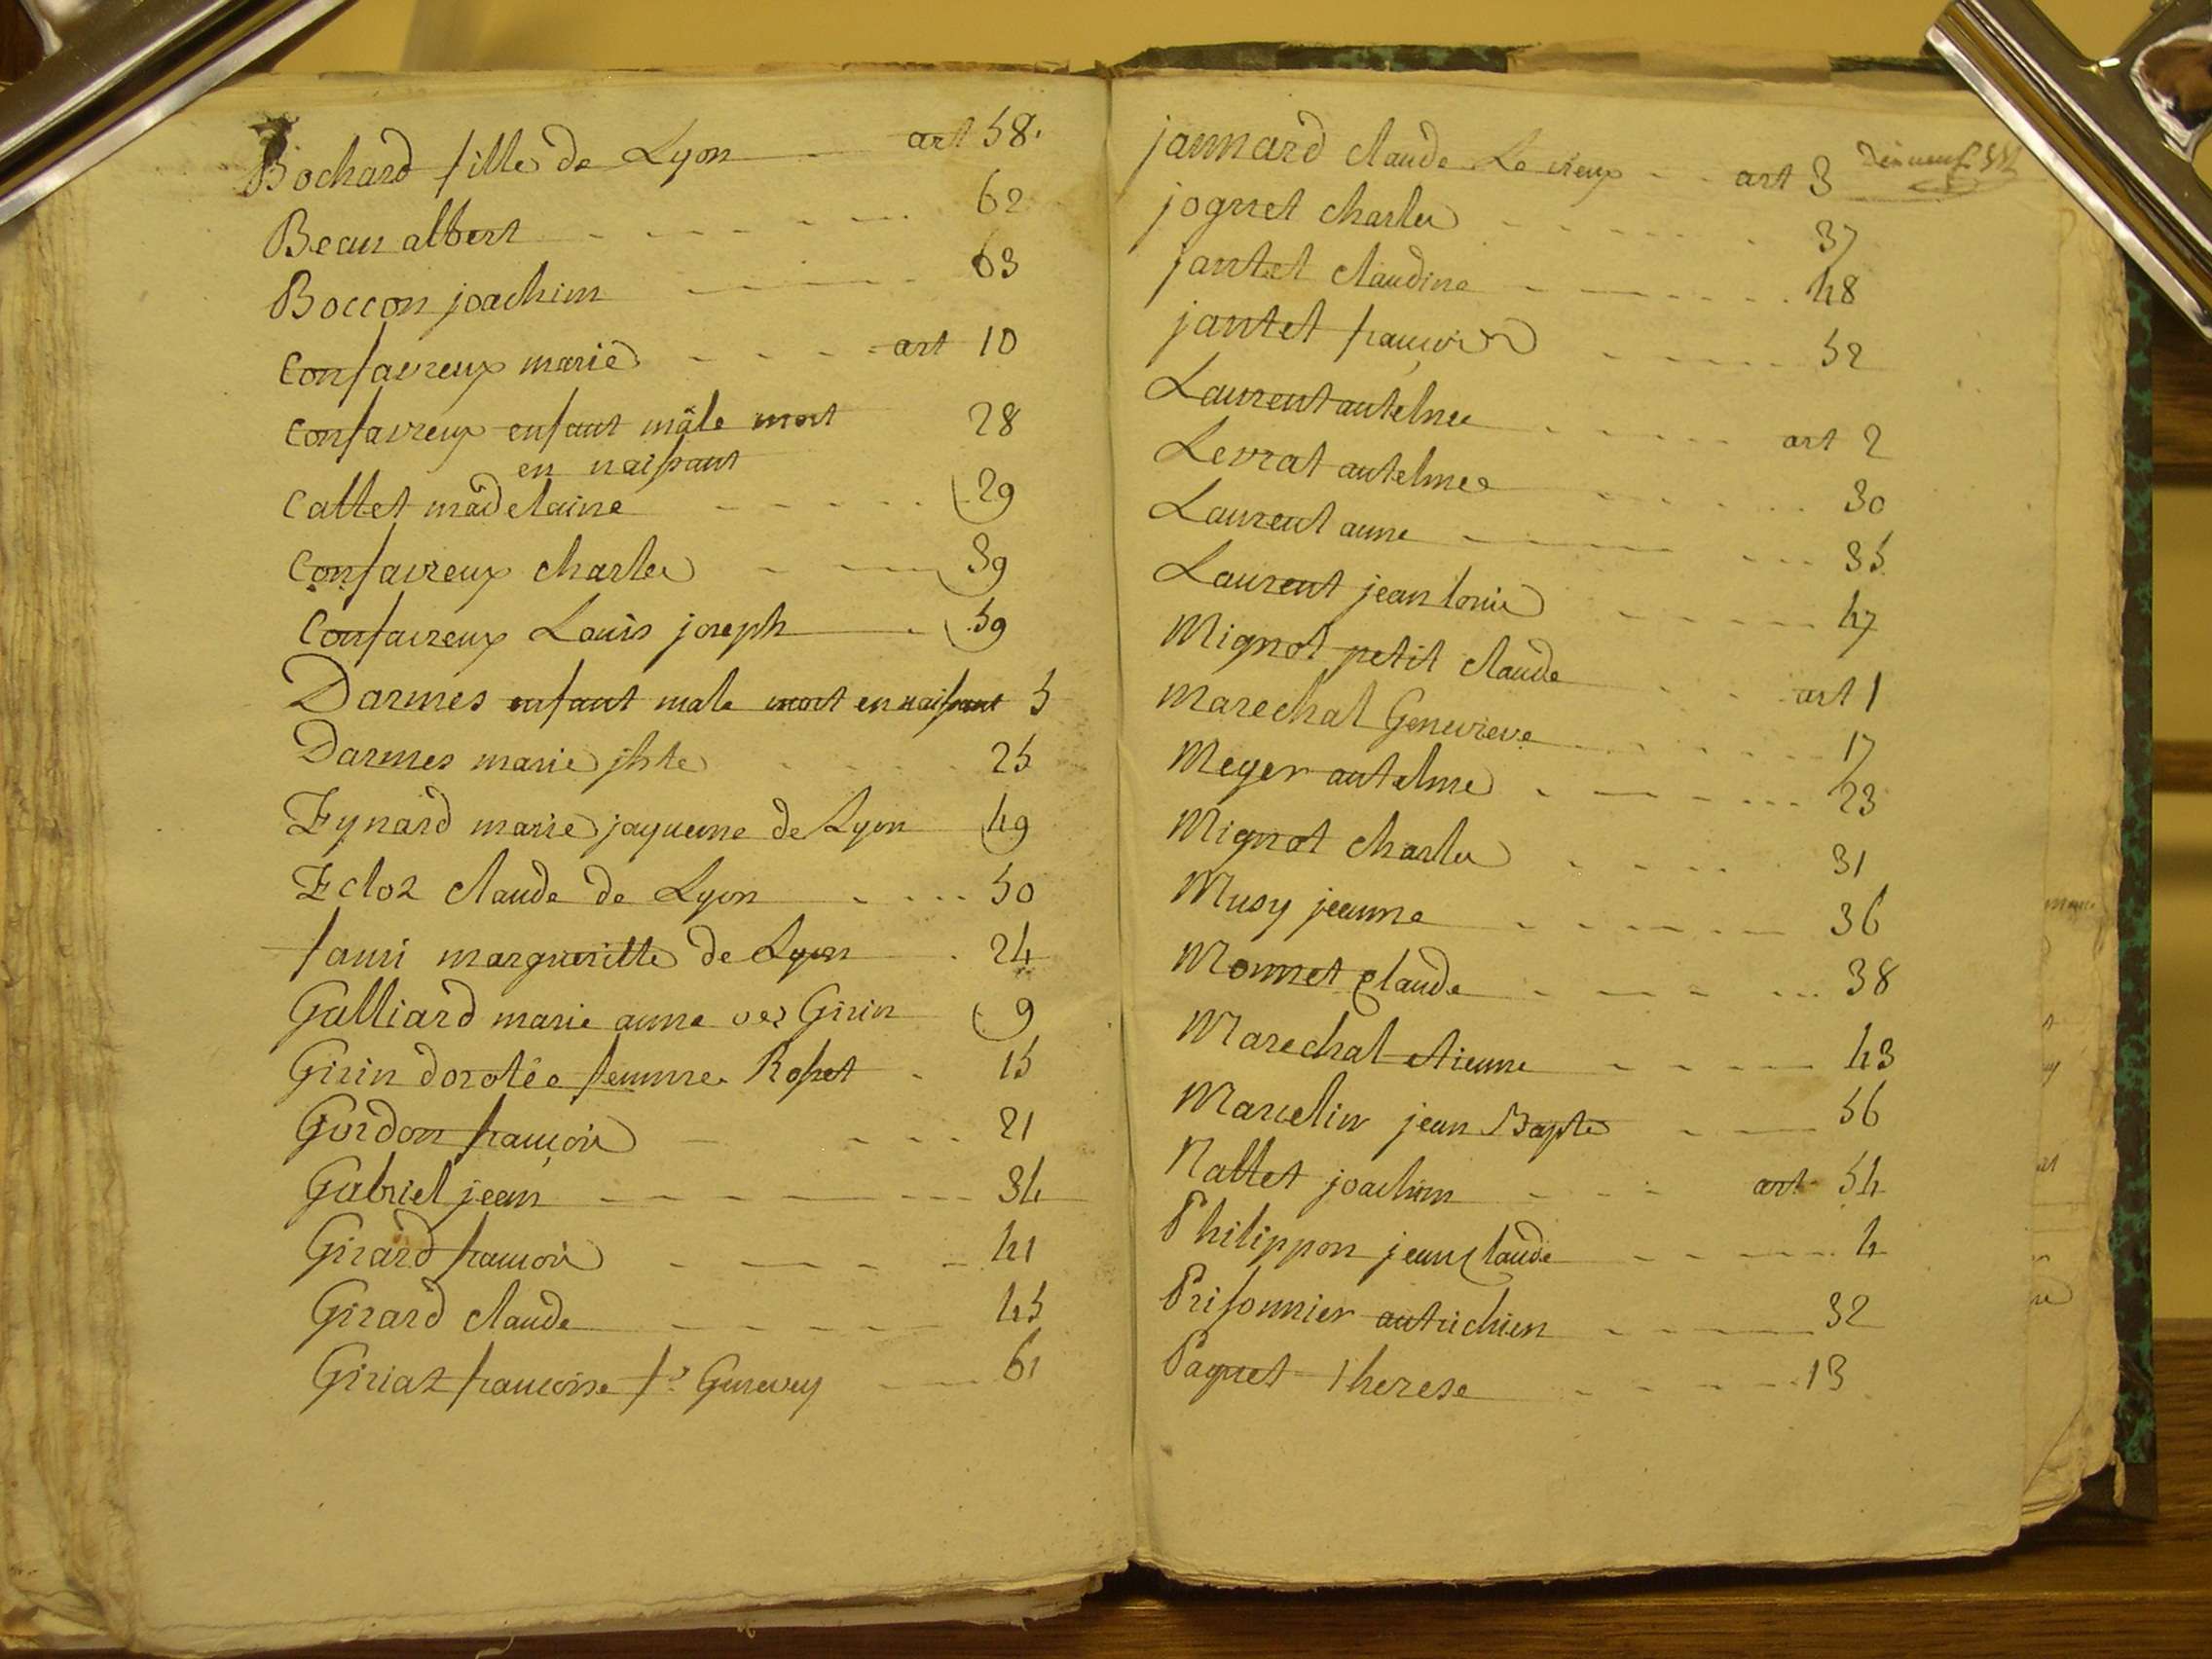 Bochard fille de Lyon art 58.
Beau albert 62
Boccon joachim 63
Confavreux marie art 10
Confavreux enfant mâle mort 28
en naissant
Callet madelaine 29
Confavreux charles 39
Confavreux Louis joseph 59
Darmes enfant male mort en naissant 5
Darmes marie jste 25
Eynard marie jaqueme de Lyon 49
Ecloz claude de Lyon 50
fauri margueritte de Lyon 24
Galliard marie anne ve Girin 9
Girin dorotée femme Rosset 15
Gordon françois 21
Gabriel jean 34
Girard francois 41
Girard claude 45
Giriat francoise fe Genevey 61
jannard claude Le vieux art 3
jognet charles 37
jantet claudine 48
jantet françois 52
Laurent antelme art 2
Levrat antelmee 30
Laurent anne 35
Laurent jean louis 47
Mignot petit claude art 1
Marechal Genevieve 17
Meyer antelme 23
Mignot charles 31
Musy jeanne 36
Monnet claude 38
Marechal etienne 43
Marcelin jean Bapte 56
Nallet joachim art 54
Philippon jean Claude 4
Prisonnier autrichien 32
Paquet Therese 13